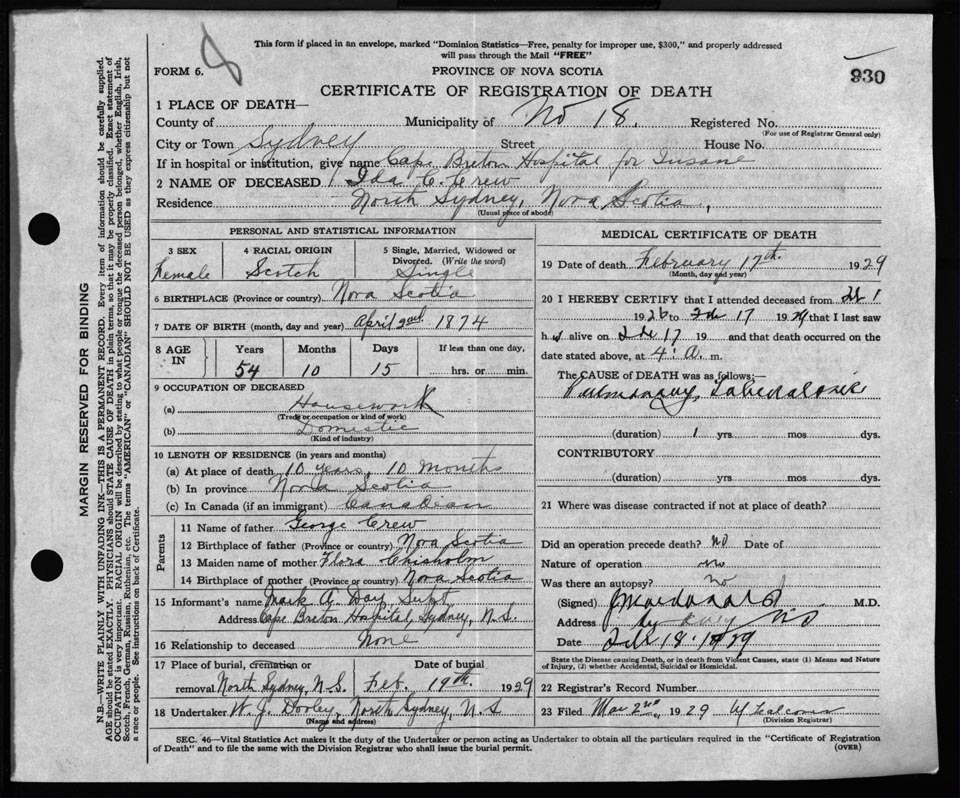 This form if placed in an envelope, marked "Dominion Statistics—Free, penalty for improper use, $300," and properly addressed
will pass through the Mail "FREE"
FORM 6.
8
PROVINCE OF NOVA SCOTIA
930
CERTIFICATE OF REGISTRATION OF DEATH
1 PLACE OF DEATH—
County of Municipality of No 18. Registered No.
(For use of Registrar General only)
City or Town Sydney Street House No.
If in hospital or institution, give name Cape Breton Hospital for Insane
2 NAME OF DECEASED Ida C. Crew
Residence North Sydney, Nova Scotia,
(Usual place of abode)
PERSONAL AND STATISTICAL INFORMATION
3 SEX 4 RACIAL ORIGIN 5 Single, Married, Widowed or
Divorced. (Write the word)
Female Scotch Single
6 BIRTHPLACE (Province or country) Nova Scotia
7 DATE OF BIRTH (month, day and year) April 2nd 1874
8 AGE IN Years Months Days If less than one day,
54 10 15 hrs. or min.
9 OCCUPATION OF DECEASED
(a) Housework
(Trade or occupation or kind of work)
(b) Domestic
(Kind of industry)
10 LENGTH OF RESIDENCE (in years and months)
(a) At place of death 10 years, 10 months
(b) In province Nova Scotia
(c) In Canada (if an immigrant) Canadian
Parents
11 Name of father George Crew
12 Birthplace of father (Province or country) Nova Scotia
13 Maiden name of mother Flora Chisholm
14 Birthplace of mother (Province or country) Nova Scotia
15 Informant's name Mark A. Day Supt
Address Cape Breton Hospital, Sydney, N.S.
16 Relationship to deceased None
17 Place of burial, cremation or Date of burial
removal North Sydney, N.S. Feb. 19th 1929
18 Undertaker W. J. Dooley, North Sydney, N.S
(Name and address)
MEDICAL CERTIFICATE OF DEATH
19 Date of death February 17th 1929
(Month, day and year)
20 I HEREBY CERTIFY that I attended deceased from 1
1926 to Feb 17 1929 that I last saw
h alive on Feb 17 19 and that death occurred on the
date stated above, at 4 A. m.
The CAUSE OF DEATH was as follows:—
Pulmonary Tuberculosis
(duration) 1 yrs mos dys.
CONTRIBUTORY
(duration) yrs mos dys.
21 Where was disease contracted if not at place of death?
Did an operation precede death? no Date of
Nature of operation no
Was there an autopsy? no
(Signed) M.D.
Address
Date Feb 18 1929
State the Disease causing Death, or in death from Violent Causes, state (1) Means and Nature
of Injury, (2) whether Accidental, Suicidal or Homicidal.
22 Registrar's Record Number
23 Filed Mar 2nd, 1929
(Division Registrar)
SEC. 46—Vital Statistics Act makes it the duty of the Undertaker or person acting as Undertaker to obtain all the particulars required in the "Certificate of Registration
of Death" and to file the same with the Division Registrar who shall issue the burial permit.
(OVER)
MARGIN RESERVED FOR BINDING
N.B.—WRITE PLAINLY WITH UNFADING INK—THIS IS A PERMANENT RECORD. Every item of information should be carefully supplied.
AGE should be stated EXACTLY. PHYSICIANS should STATE CAUSE OF DEATH in plain terms, so that it may be properly classified. Exact statement of
OCCUPATION is very important. RACIAL ORIGIN will be described by stating to what people or tongue the deceased person belonged, whether English, Irish,
Scotch, French, German, Russian, Ruthenian, etc. The terms "AMERICAN" or "CANADIAN" SHOULD NOT BE USED as they express citizenship but not
a race or people. See instructions on back of Certificate.